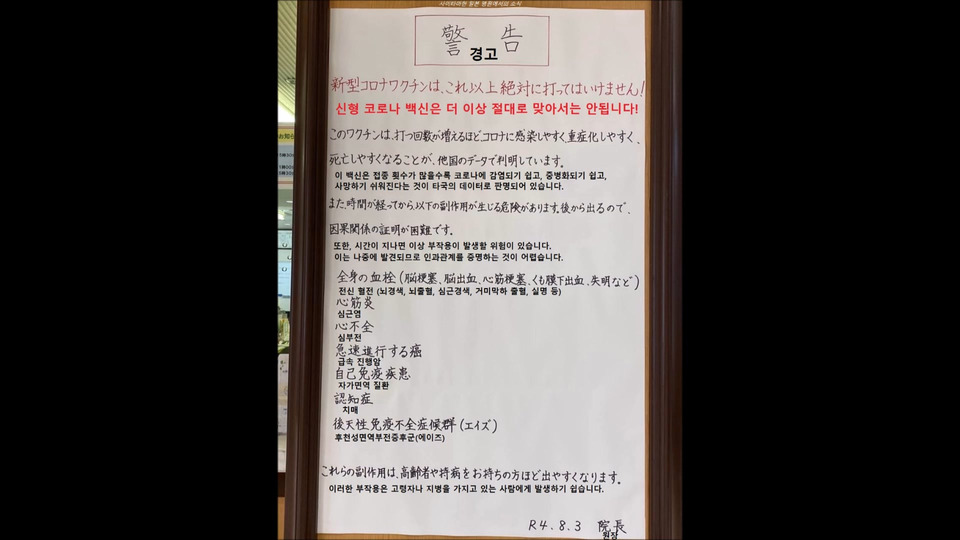 사이타마현 일본 병원에서의 소식
警告
경고
新型コロナワクチンは、これ以上絶対に打ってはいけません!
신형 코로나 백신은 더 이상 절대로 맞아서는 안됩니다!
このワクチンは、打つ回数が増えるほど、コロナに感染しやすく、重症化しやすく、
死亡しやすくなることが、他国のデータで判明しています。
이 백신은 접종 횟수가 많을수록 코로나에 감염되기 쉽고, 중병화되기 쉽고,
사망하기 쉬워진다는 것이 타국의 데이터로 판명되어 있습니다.
また、時間が経ってから、以下の副作用が生じる危険があります。後から出るので、
因果関係の証明が困難です。
또한, 시간이 지나면 이상 부작용이 발생할 위험이 있습니다.
이는 나중에 발견되므로 인과관계를 증명하는 것이 어렵습니다.
全身の血栓(脳梗塞、脳出血、心筋梗塞、くも膜下出血、失明など)
전신 혈전 (뇌경색, 뇌출혈, 심근경색, 거미막하 출혈, 실명 등)
心筋炎
심근염
心不全
심부전
急速進行する癌
급속 진행암
自己免疫疾患
자가면역 질환
認知症
치매
後天性免疫不全症候群(エイズ)
후천성면역부전증후군(에이즈)
これらの副作用は、高齢者や持病をお持ちの方ほど出やすくなります。
이러한 부작용은 고령자나 지병을 가지고 있는 사람에게 발생하기 쉽습니다.
R4.8.3 院長
원장